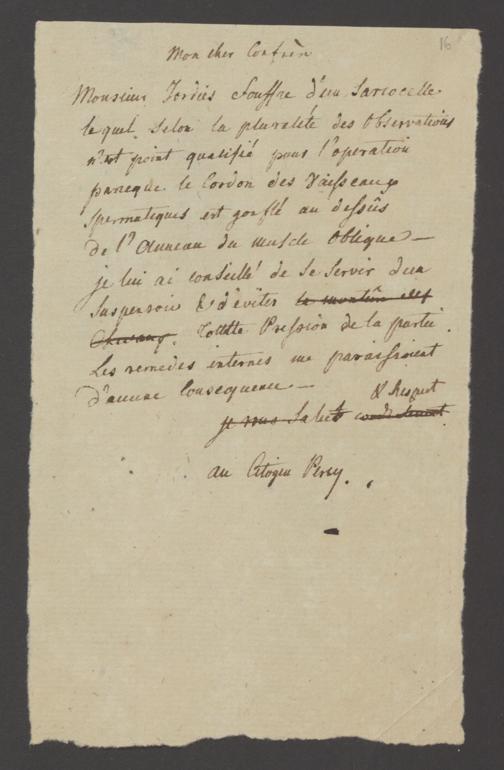 16
Mon cher Confrèr
Monsieur Jordis souffre d'un Sarcocelle
lequel selon la pluralité des Observations
n'est point qualifié pour l'operation
parceque le Cordon des Vaisseaux
spermatiques est gonflé au dessûs
de l'Anneau du muscle Oblique —
je lui ai conseillé de se servir d'un
Suspensoir & d'éviter
Toutte Pression de la partie.
Les remedes internes me paraissoient
d'aucune Consequence —
& Respect
je vous Salut cordialement
au Citoyen Percy.